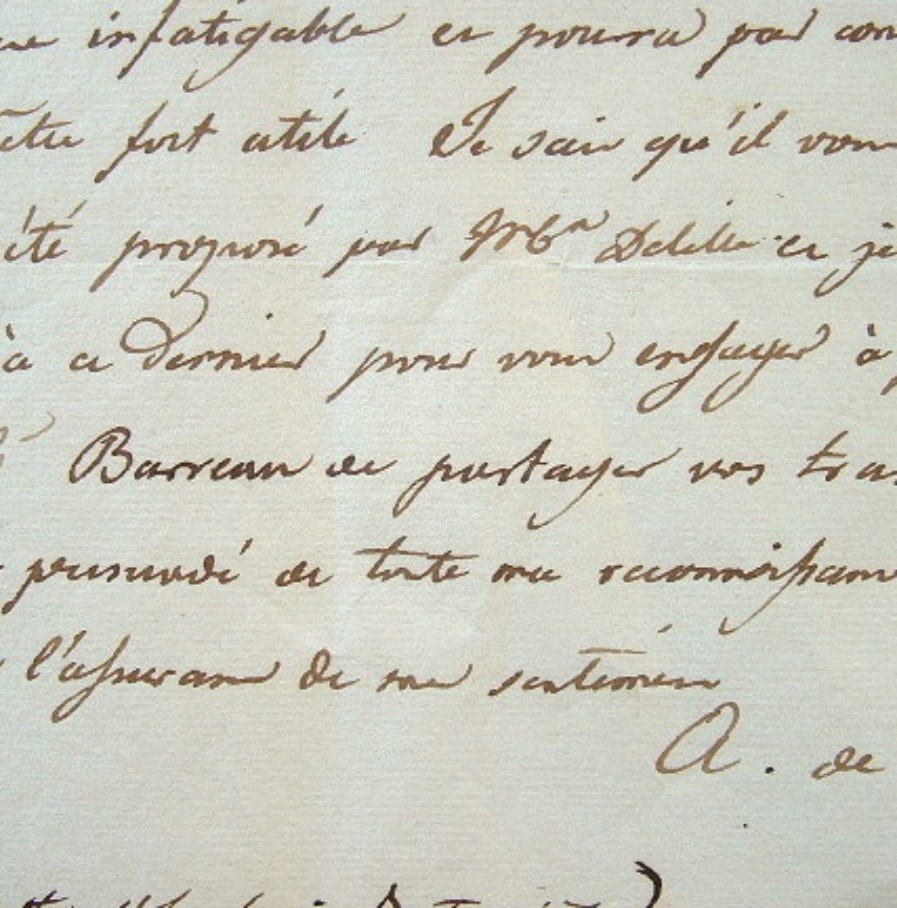 infatigable et pourra par con
être fort utile Je sais qu'il vous
été proposé par Mgr Delille et je
à ce Dernier pour vous engager à
Barreau de partager vos tra
persuadé de toute ma reconnoissance
l'assurance de mes sentimens
A. de